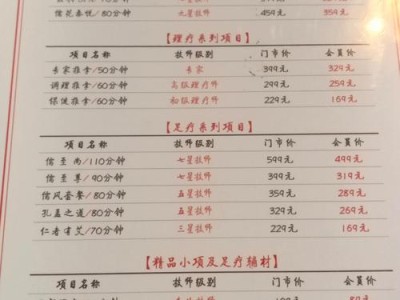 儒花奉悦/80分钟 九星技师 459元 359元
【理疗系列项目】
项目名称 技师级别 门市价 会员价
专家雅拿/50分钟 专家 399元 329元
调理雅拿/60分钟 高级理疗师 299元 259元
保健雅拿/60分钟 初级理疗师 229元 159元
【足疗系列项目】
项目名称 技师级别 门市价 会员价
儒至尚/110分钟 七星技师 599元 499元
儒至尊/90分钟 七星技师 399元 319元
儒风套餐/80分钟 五星技师 359元 289元
孔孟之道/80分钟 五星技师 329元 269元
仁者有艾/70分钟 三星技师 229元 169元
【精品小项及足疗辅材】
项目名称 技师级别 门市价 会员价